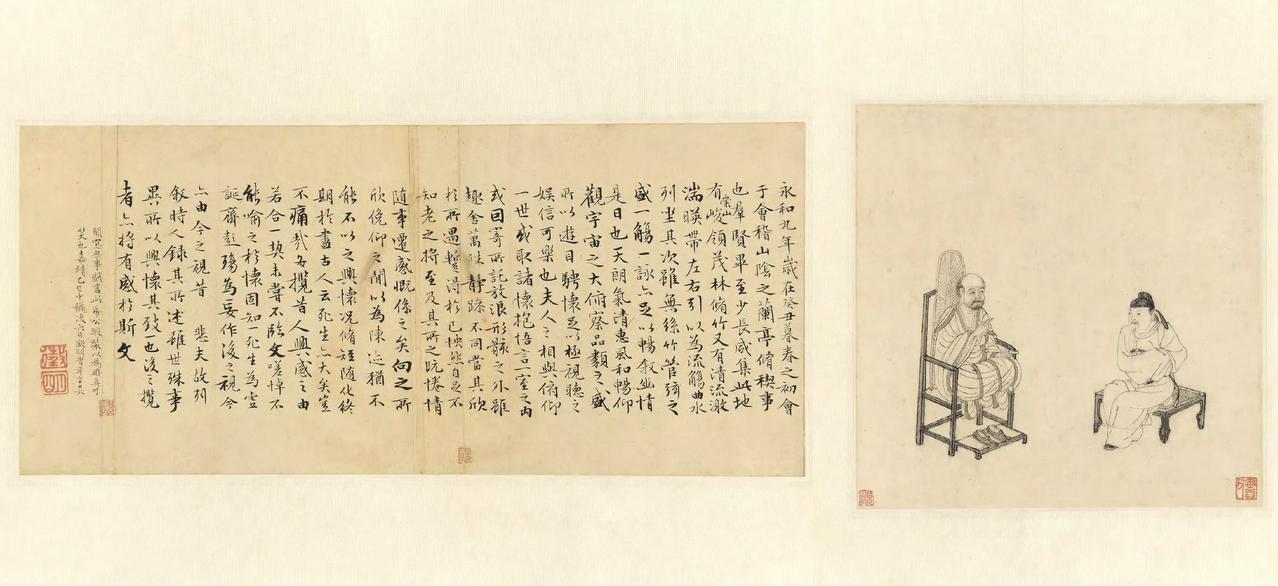 永和九年歲在癸丑暮春之初會
于會稽山陰之蘭亭脩稧事
也羣賢畢至少長咸集此地
有崇山峻領茂林脩竹又有清流激
湍暎帶左右引以為流觴曲水
列坐其次雖無絲竹管弦之
盛一觴一詠亦足以暢敘幽情
是日也天朗氣清惠風和暢仰
觀宇宙之大俯察品類之盛
所以遊目騁懷足以極視聽之
娛信可樂也夫人之相與俯仰
一世或取諸懷抱悟言一室之內
或因寄所託放浪形骸之外雖
趣舍萬殊静躁不同當其欣
於所遇蹔得於己怏然自足不
知老之將至及其所之既惓情
隨事遷感慨係之矣向之所
欣俛仰之閒以為陳迹猶不
能不以之興懷況脩短隨化終
期於盡古人云死生亦大矣豈
不痛哉每攬昔人興感之由
若合一契未嘗不臨文嗟悼不
能喻之於懷固知一死生為虛
誕齊彭殤為妄作後之視今
亦由今之視昔 悲夫故列
敘時人錄其所述雖世殊事
異所以興懷其致一也後之攬
者亦將有感於斯文
閒窗無事戲書此
笑也嘉靖
徵明